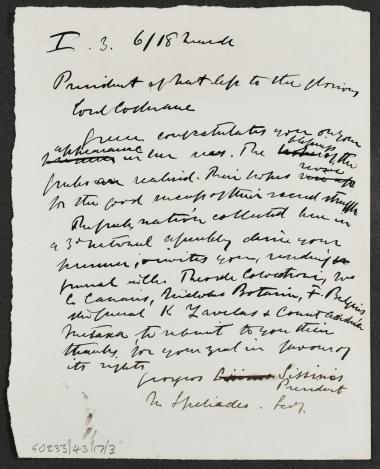 I . 3. 6/18 March
President of nat. ass. to the glorious
Lord Cochrane
Greece congratulates you on your
appearance in her seas. The blessings of the
greeks are realised. Their hopes revive
for the good success of their sacred struggle
The greek nation collected here in
a 3rd national assembly desire your
presence, & invites you, sending
general Theodore Colocotroni,
C. Canaris, Nicholas Botassi, F.
the General K Zavelas & Count
Metaxa, to submit to you their
thanks for your zeal in favour of
its rights
Georgios Sissinis
President
N Speliades. Secy.
40233/43/17/3